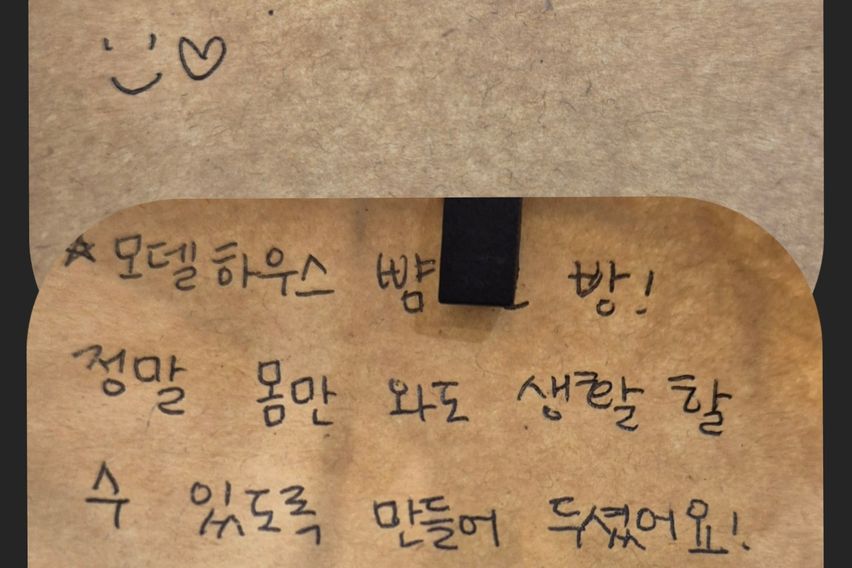 ☆ 모델하우스 방!
정말 몸만 와도 생활 할
수 있도록 만들어 두셨어요!